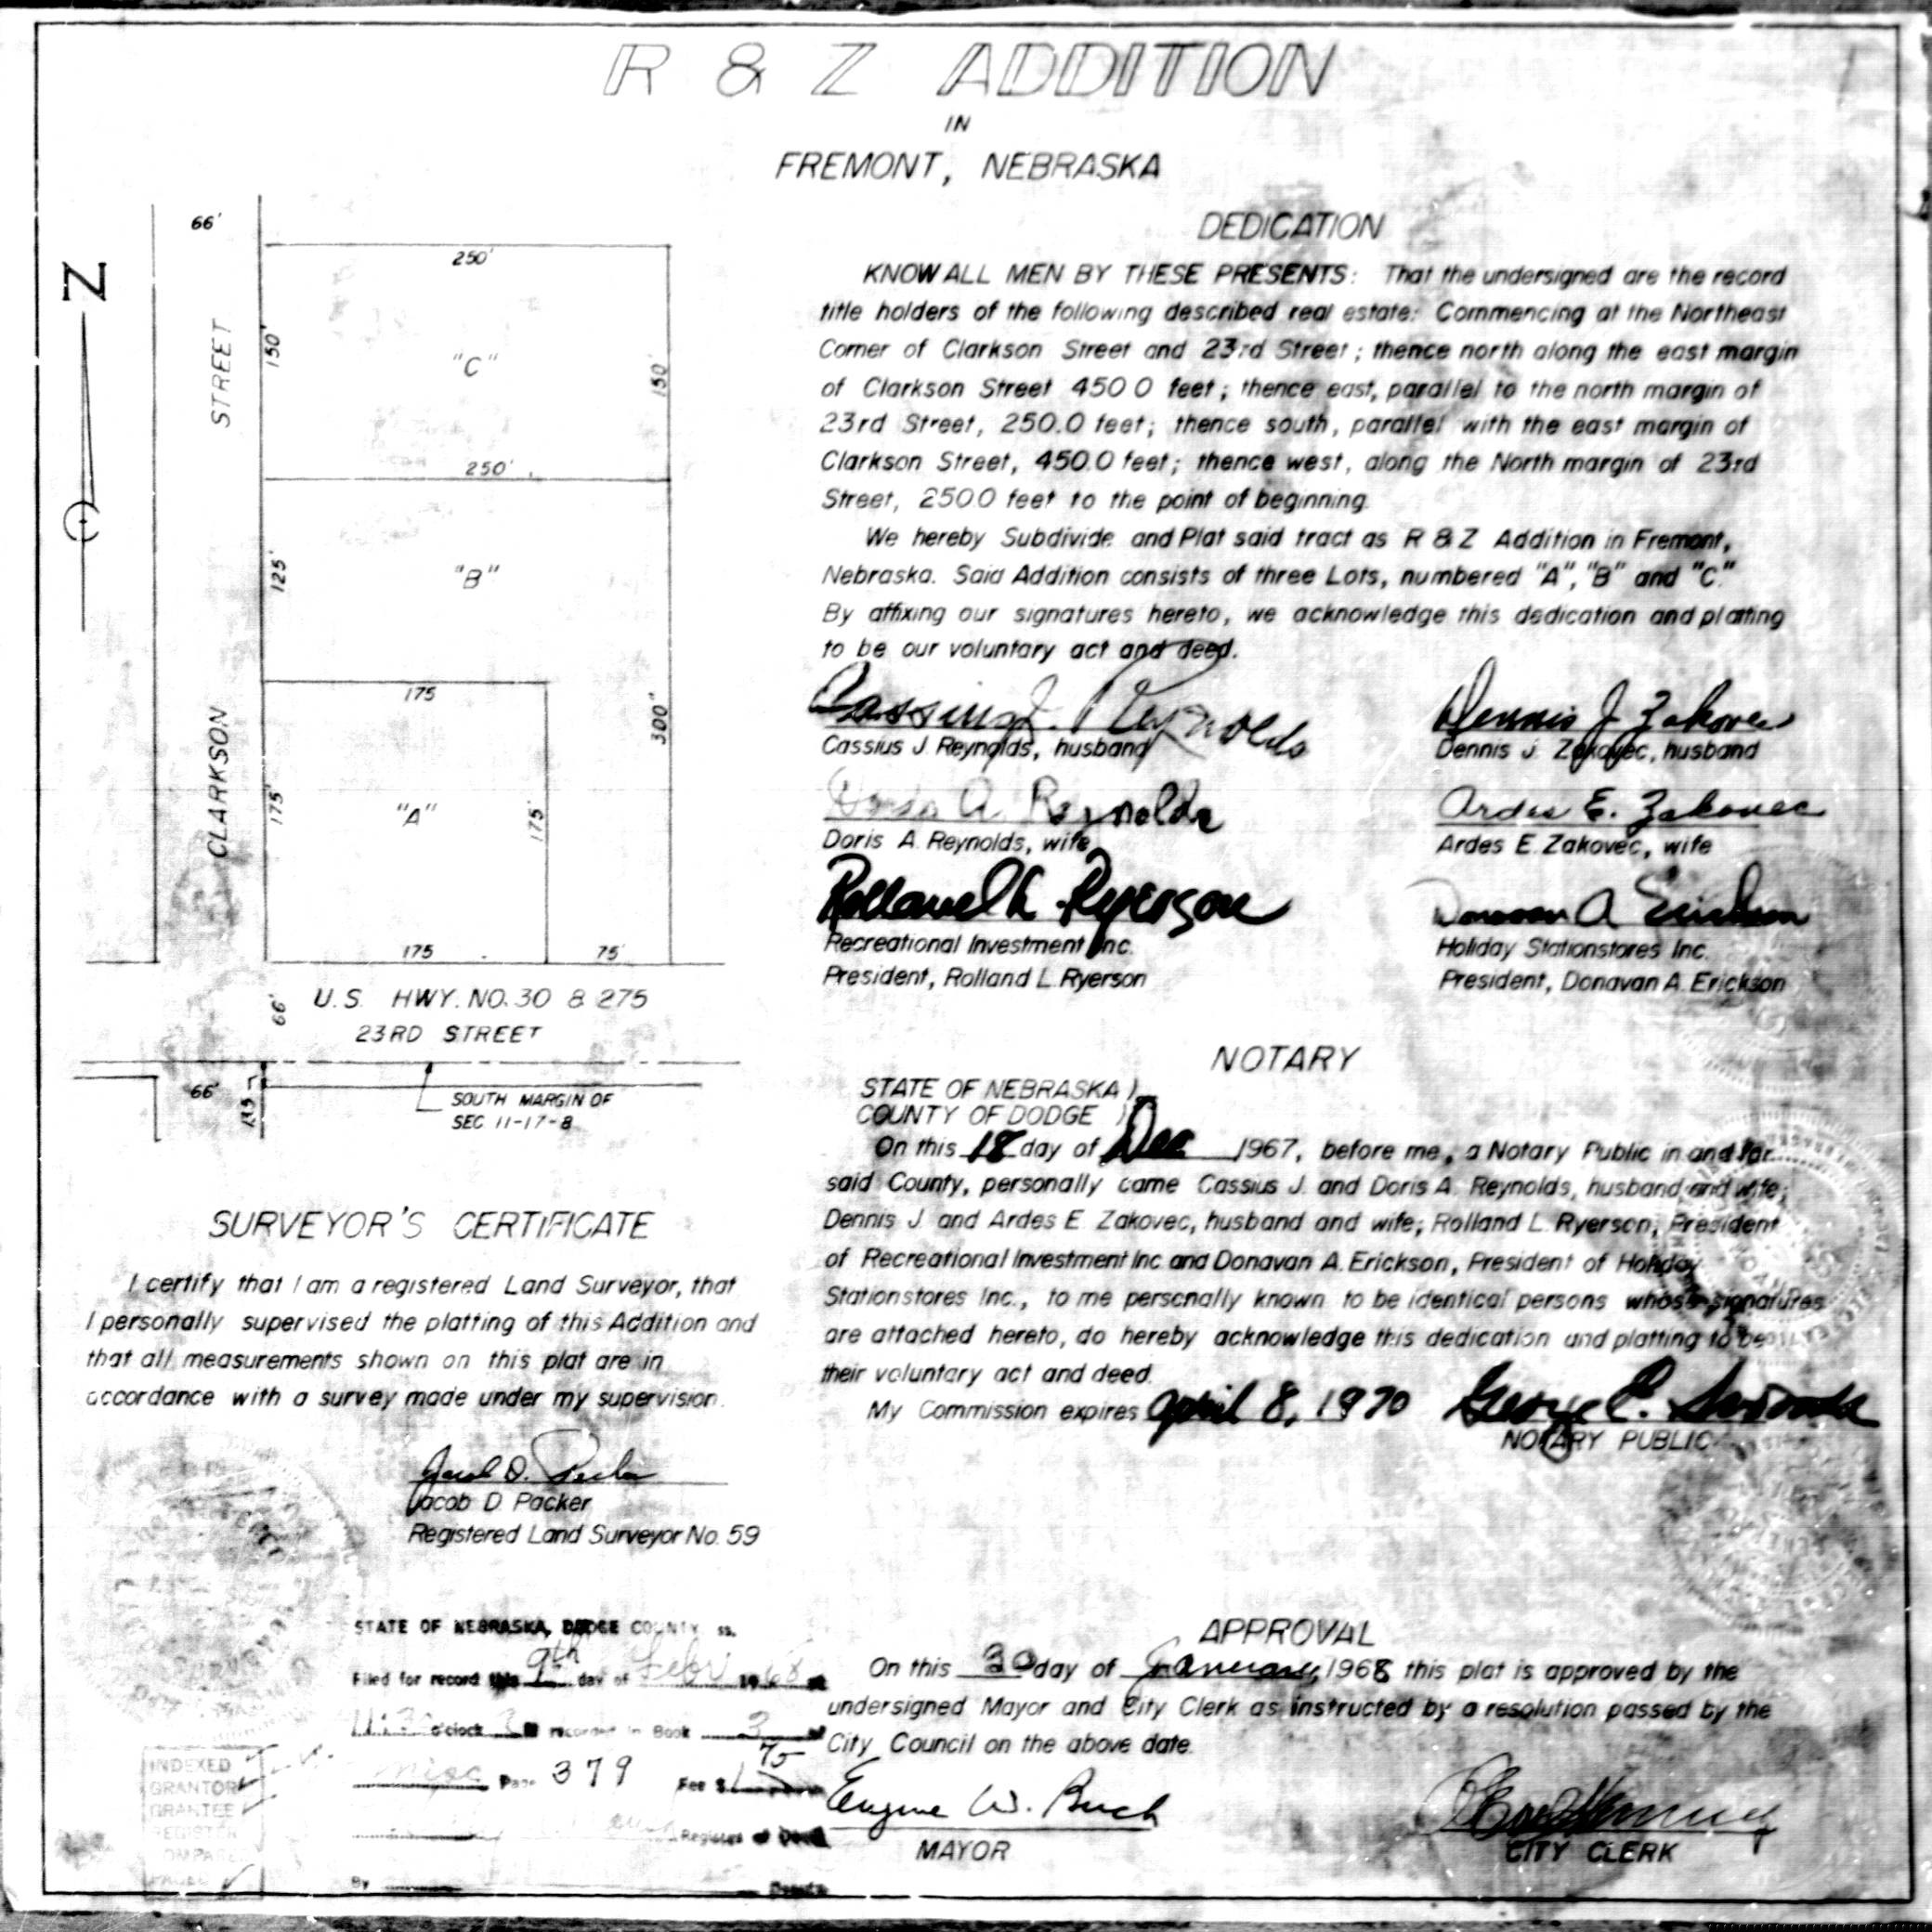 R & Z ADDITION
IN
FREMONT, NEBRASKA
66'
N
250'
STREET
150'
"C"
150'
250'
125'
"B"
175
300'
CLARKSON
175'
"A"
175'
175
75'
U.S. HWY. NO. 30 & 275
66'
23RD STREET
66'
SOUTH MARGIN OF
SEC. 11-17-8
SURVEYOR'S CERTIFICATE
I certify that I am a registered Land Surveyor, that
I personally supervised the platting of this Addition and
that all measurements shown on this plat are in
accordance with a survey made under my supervision.
Jacob D. Packer
Jacob D. Packer
Registered Land Surveyor No. 59
STATE OF NEBRASKA, DODGE COUNTY ss.
Filed for record this 9th day of Febr 1968 at
11:30 o'clock recorded in Book 3 of
Misc Page 379 Fee $1.75
Register of Deeds
By Deputy
INDEXED
GRANTOR
GRANTEE
REGISTER
COMPARED
PAGED
DEDICATION
KNOW ALL MEN BY THESE PRESENTS: That the undersigned are the record
title holders of the following described real estate: Commencing at the Northeast
Corner of Clarkson Street and 23rd Street; thence north along the east margin
of Clarkson Street 450.0 feet; thence east, parallel to the north margin of
23rd Street, 250.0 feet; thence south, parallel with the east margin of
Clarkson Street, 450.0 feet; thence west, along the North margin of 23rd
Street, 250.0 feet to the point of beginning.
We hereby Subdivide and Plat said tract as R & Z Addition in Fremont,
Nebraska. Said Addition consists of three Lots, numbered "A", "B" and "C."
By affixing our signatures hereto, we acknowledge this dedication and platting
to be our voluntary act and deed.
Cassius J. Reynolds Dennis J. Zakovec
Cassius J. Reynolds, husband Dennis J. Zakovec, husband
Doris A. Reynolds Ardes E. Zakovec
Doris A. Reynolds, wife Ardes E. Zakovec, wife
Rolland L. Ryerson Donavan A Erickson
Recreational Investment Inc. Holiday Stationstores Inc.
President, Rolland L. Ryerson President, Donavan A. Erickson
NOTARY
STATE OF NEBRASKA )
COUNTY OF DODGE )
On this 18 day of Dec 1967, before me, a Notary Public in and for
said County, personally came Cassius J. and Doris A. Reynolds, husband and wife;
Dennis J. and Ardes E. Zakovec, husband and wife; Rolland L. Ryerson, President
of Recreational Investment Inc. and Donavan A. Erickson, President of Holiday
Stationstores Inc., to me personally known to be identical persons whose signatures
are attached hereto, do hereby acknowledge this dedication and platting to be
their voluntary act and deed.
My Commission expires April 8, 1970 George E.
NOTARY PUBLIC
APPROVAL
On this 30 day of January, 1968 this plat is approved by the
undersigned Mayor and City Clerk as instructed by a resolution passed by the
City Council on the above date.
Eugene W. Buch
MAYOR CITY CLERK